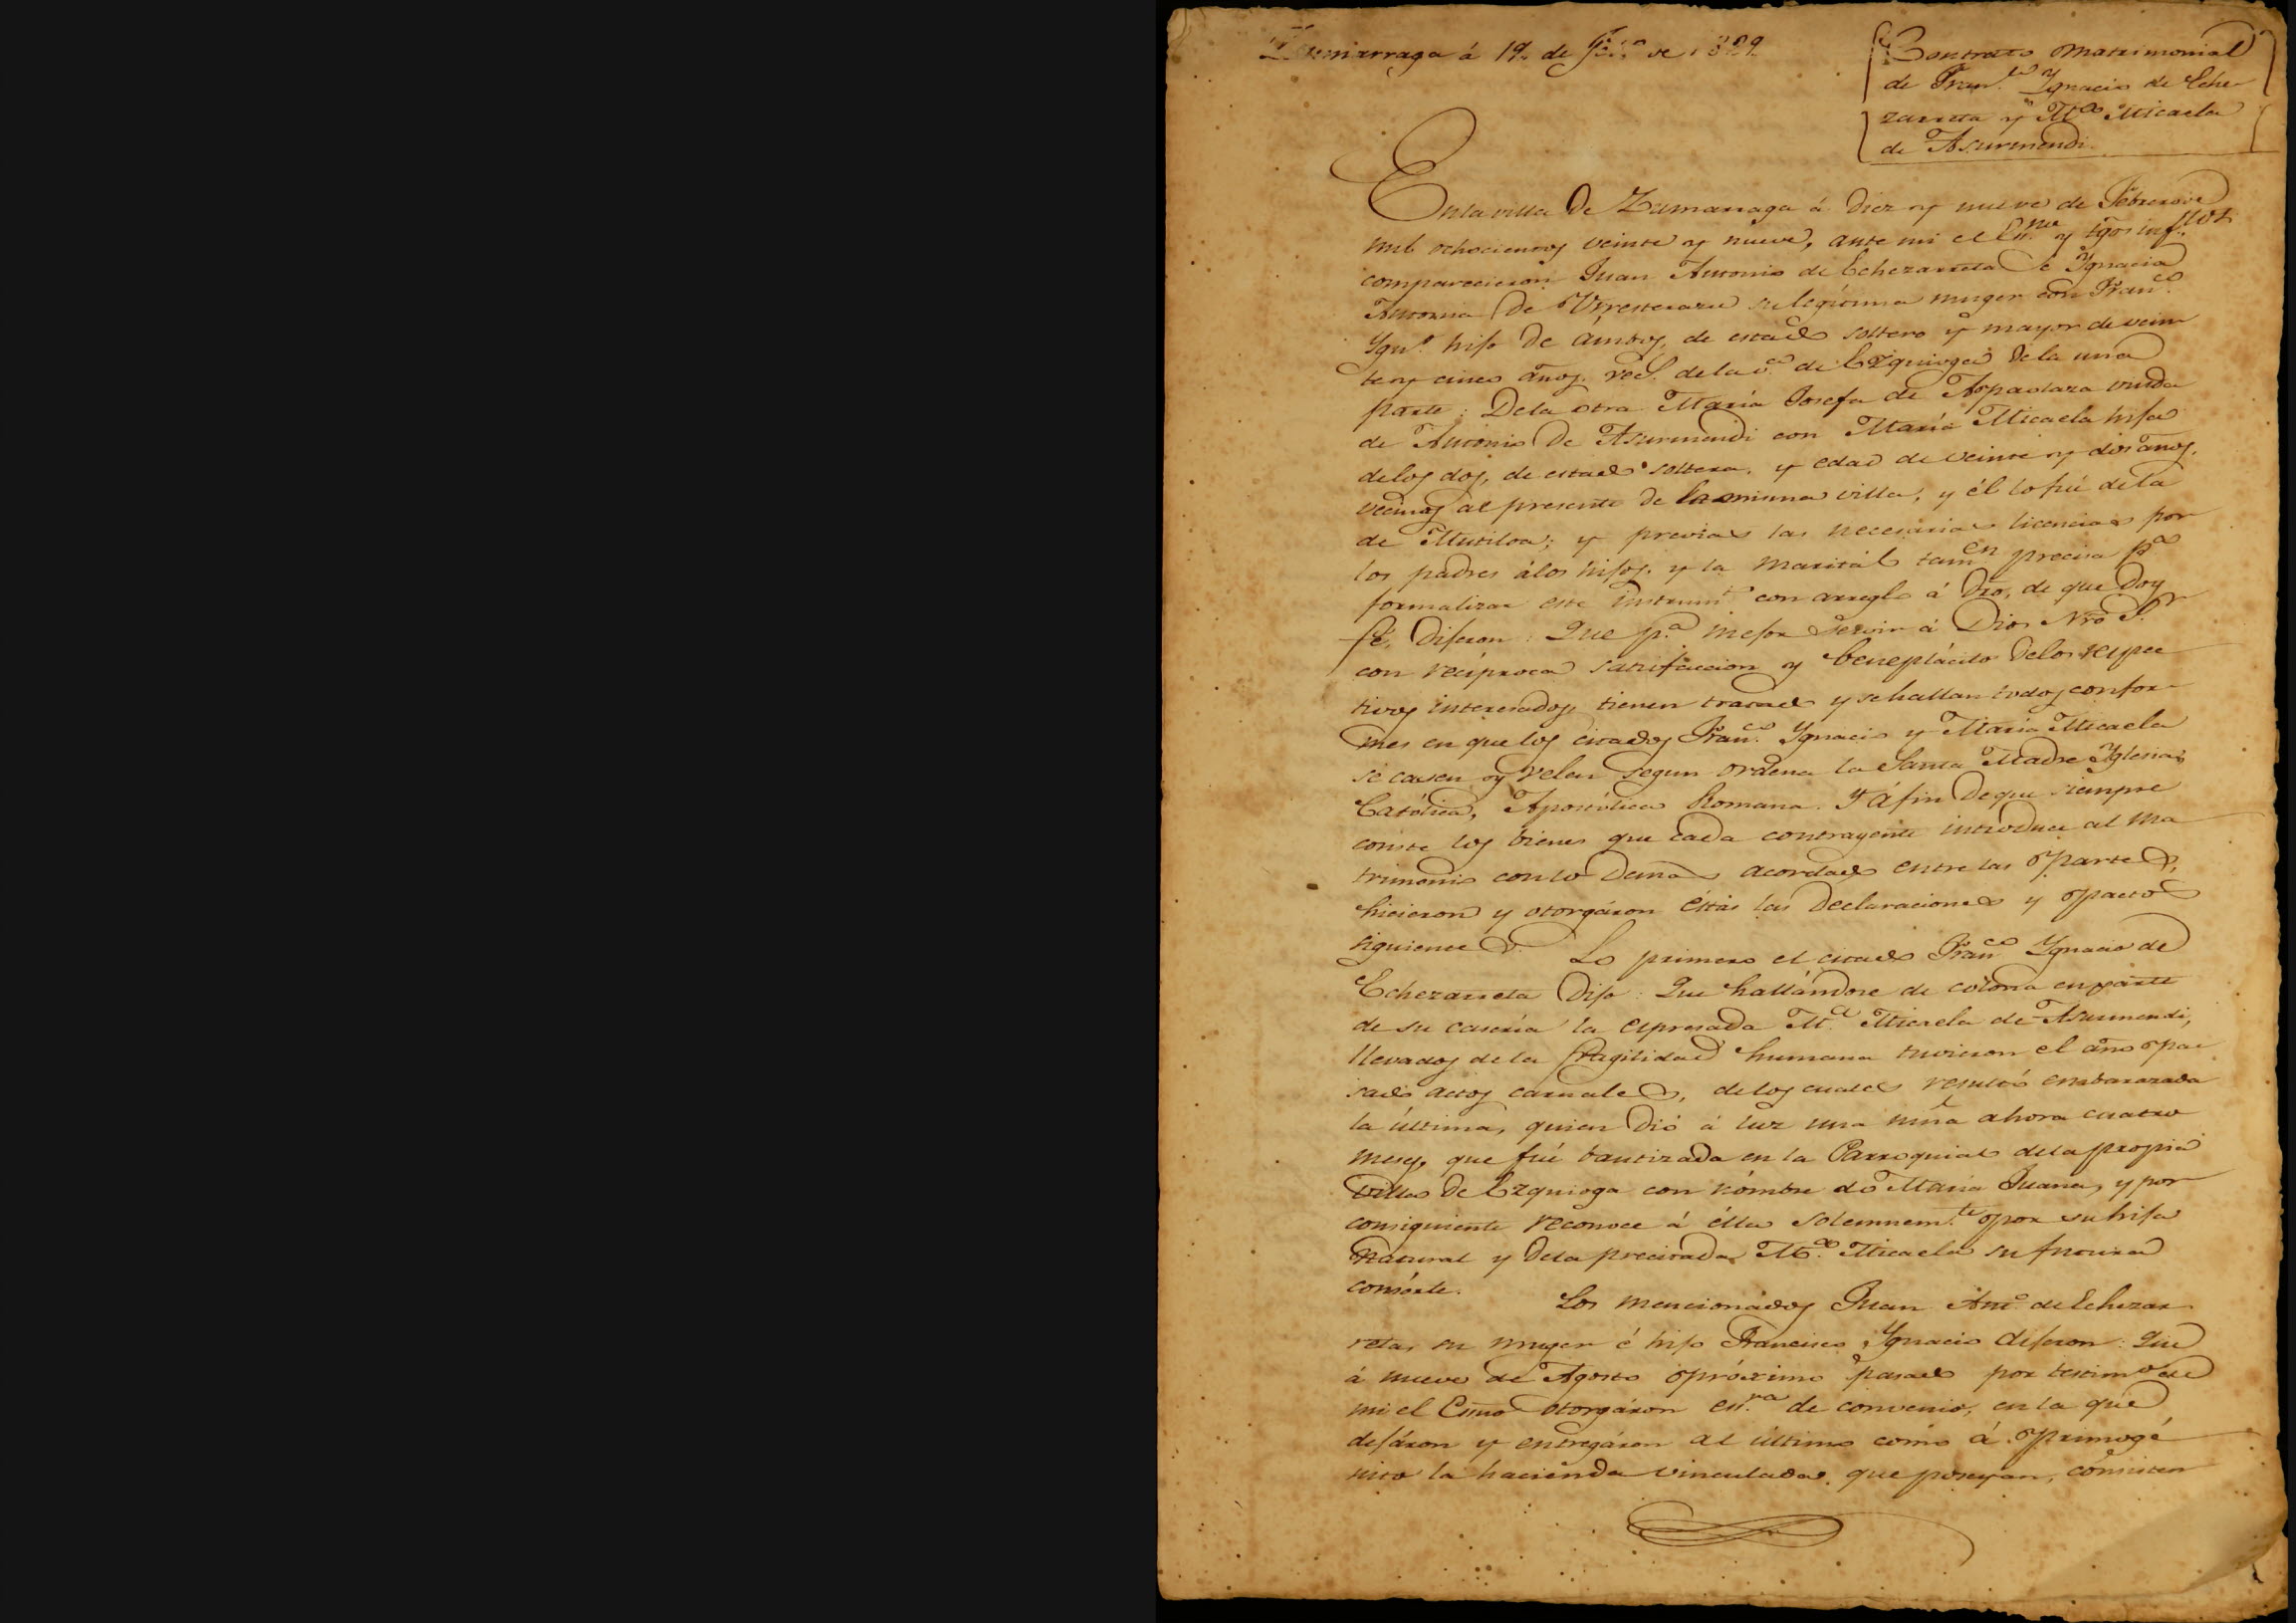 Zumarraga á 19. de Feb.º de 1829.
Contrato matrimonial
de Fran.co Ygnacio de Eche-
zarreta y M.ª Micaela
de Asurmendi.
En la villa de Zumarraga á diez y nueve de Febrero de
mil ochocientos veinte y nueve, ante mi el Es.no y tgos inf.tos
comparecieron Juan Antonio de Echezarreta é Ygnacia
Antonia de Urrestarazu su legítima muger con Fran.co
Ygn.º hijo de ámbos, de estado soltero y mayor de vein
te y cinco años, vec.s de la v.ª de Ezquioga de la una
parte: De la otra María Josefa de Aspiazu viuda
de Antonio de Asurmendi con María Micaela hija
de los dos, de estado soltera, y edad de veinte y dos años,
vecinos al presente de la misma villa, y él lo fué de la
de Mutiloa; y previas las necesarias licencias por
los padres á los hijos, y la marital tamen precisa p.ª
formalizar este instrum.to con arreglo á Dro, de que doy
fé, Dijeron: Que p.ª mejor servir á Dios Nro S.r
con recíproca satisfaccion y beneplácito de los respec
tivos interesados, tienen tratado y se hallan todos confor-
mes en que los citados Fran.co Ygnacio y María Micaela
se casen y velen segun ordena la Santa Madre Yglesia
Católica, Apostólica Romana. Y á fin de que siempre
conste los bienes que cada contrayente introduce al ma
trimonio con lo demas acordado entre las partes,
hicieron y otorgáron éstas las declaraciones y pactos
siguientes. Lo primero el citado Fran.co Ygnacio de
Echezarreta Dijo: Que hallándose de colona en parte
de su caseria la espresada M.ª Micaela de Asurmendi,
llevados de la fragilidad humana tuvieron el año pa-
sado actos carnales, de los cuales resultó embarazada
la última, quien dió á luz una niña ahora cuatro
meses, que fué bautizada en la Parroquial de la propia
villa de Ezquioga con nómbre de María Juana, y por
consiguiente reconoce á élla solemnem.te por su hija
natural y de la precitada M.ª Micaela su futura
consorte.
Los mencionados Juan Ant.º de Echezar-
reta, su muger é hijo Francisco Ygnacio dijeron: Que
á nueve de Agosto próximo pasado por testim.º de
mi el Esno otorgáron es.ra de convenio, en la que
dejáron y entregáron al último como á primogé
nito la haciénda vinculada que poseyan, consisten